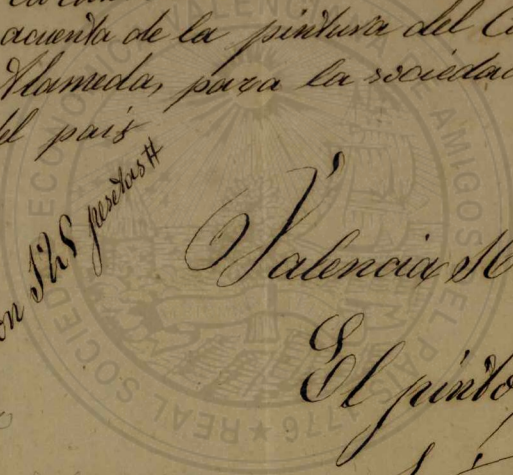 acuenta de la pintura del
Alameda, para la sociedad
del pais
Son 125 pesetas#
Valencia
El pinto
REAL SOCIEDAD ECONOMICA VALENCIANA AMIGOS DEL PAIS 1776